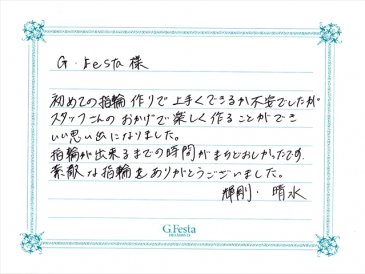 G.Festa 様
初めての指輪作りで上手くできるか不安でしたが
スタッフさんのおかげで楽しく作ることができ
いい思い出になりました。
指輪が出来るまでの時間がまちどおしかったです。
素敵な指輪をありがとうございました。
輝剛・晴水
G.Festa